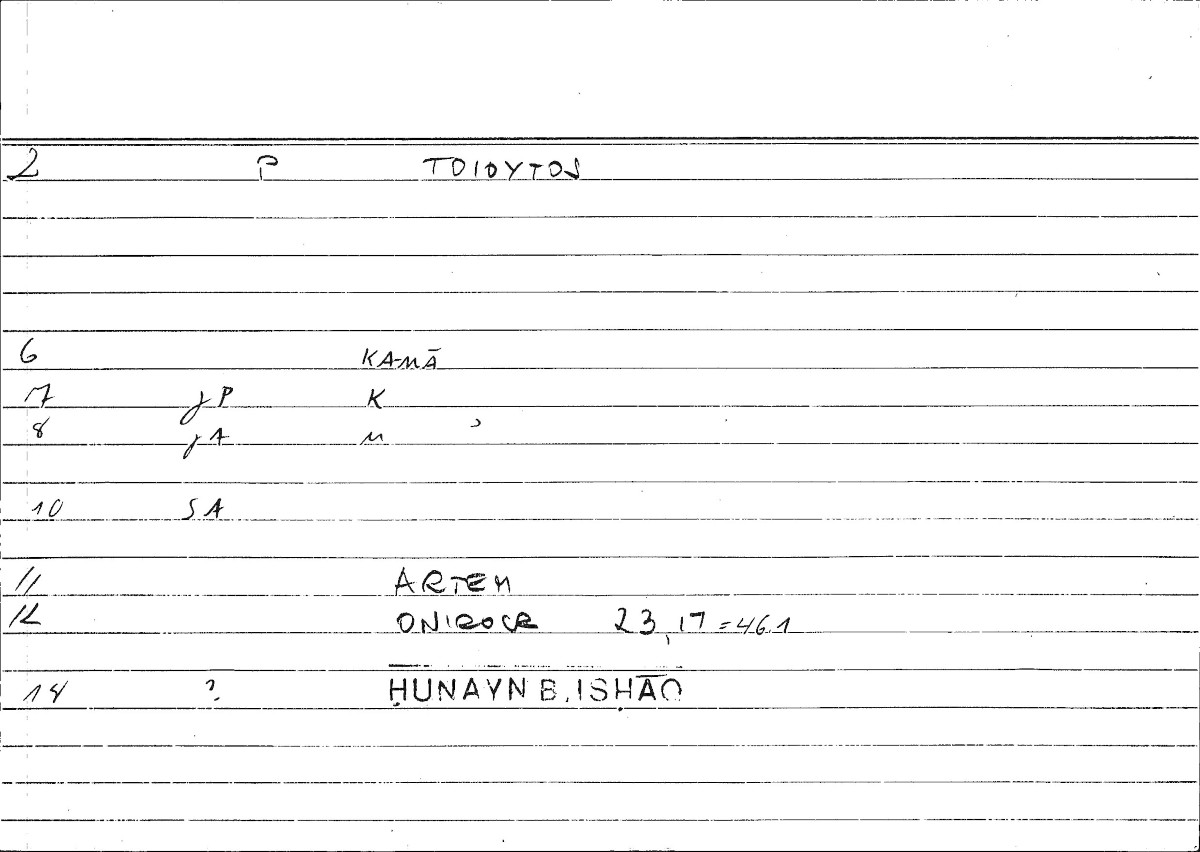 2 P TOIOYTOS
6 KA-MĀ
7 jP K
8 jA M
10 SA
11 ARTEM
12 ONIROCR 23,17 = 46.1
14 ? ḤUNAYN B. ISḤĀQ